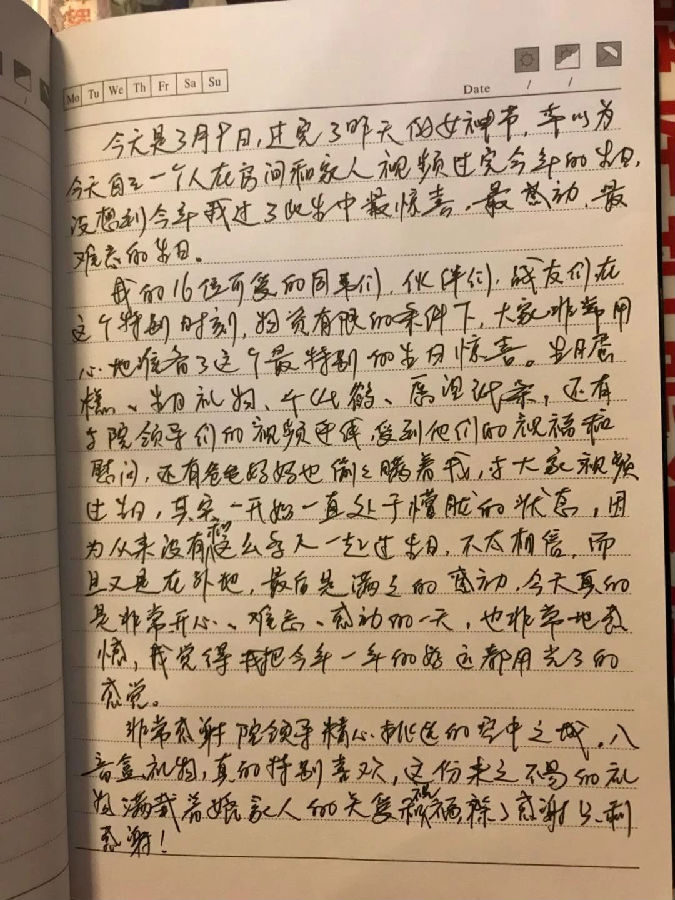 Mo Tu We Th Fr Sa Su
Date / /
今天是3月9日,过完了昨天的女神节,本以为
今天自己一个人在房间和家人视频过完今年的生日,
没想到今年我过了此生中最惊喜、最感动、最
难忘的生日。
我的16位可爱的同事们、伙伴们,战友们在
这个特别时刻,物资有限的条件下,大家非常用
心地准备了这个最特别的生日惊喜。生日蛋
糕、生日礼物、千纸鹤、
院领导们的视频连线,受到他们的祝福和
慰问,还有爸爸妈妈也偷偷瞒着我,与大家视频
过生日,其实一开始一直处于懵的状态,因
为从来没有和这么多人一起过生日,不太相信,而
且又是在外地,最后是满满的感动,今天真的
是非常开心、难忘、感动的一天,也非常地感
慨,我觉得我把今年一年的好运都用光了的
感觉。
非常感谢院领导精心挑选的空中之城,八
音盒礼物,真的特别喜欢,这份来之不易的礼
物满载着娘家人的关爱和祝福,除了感谢只剩
感谢!